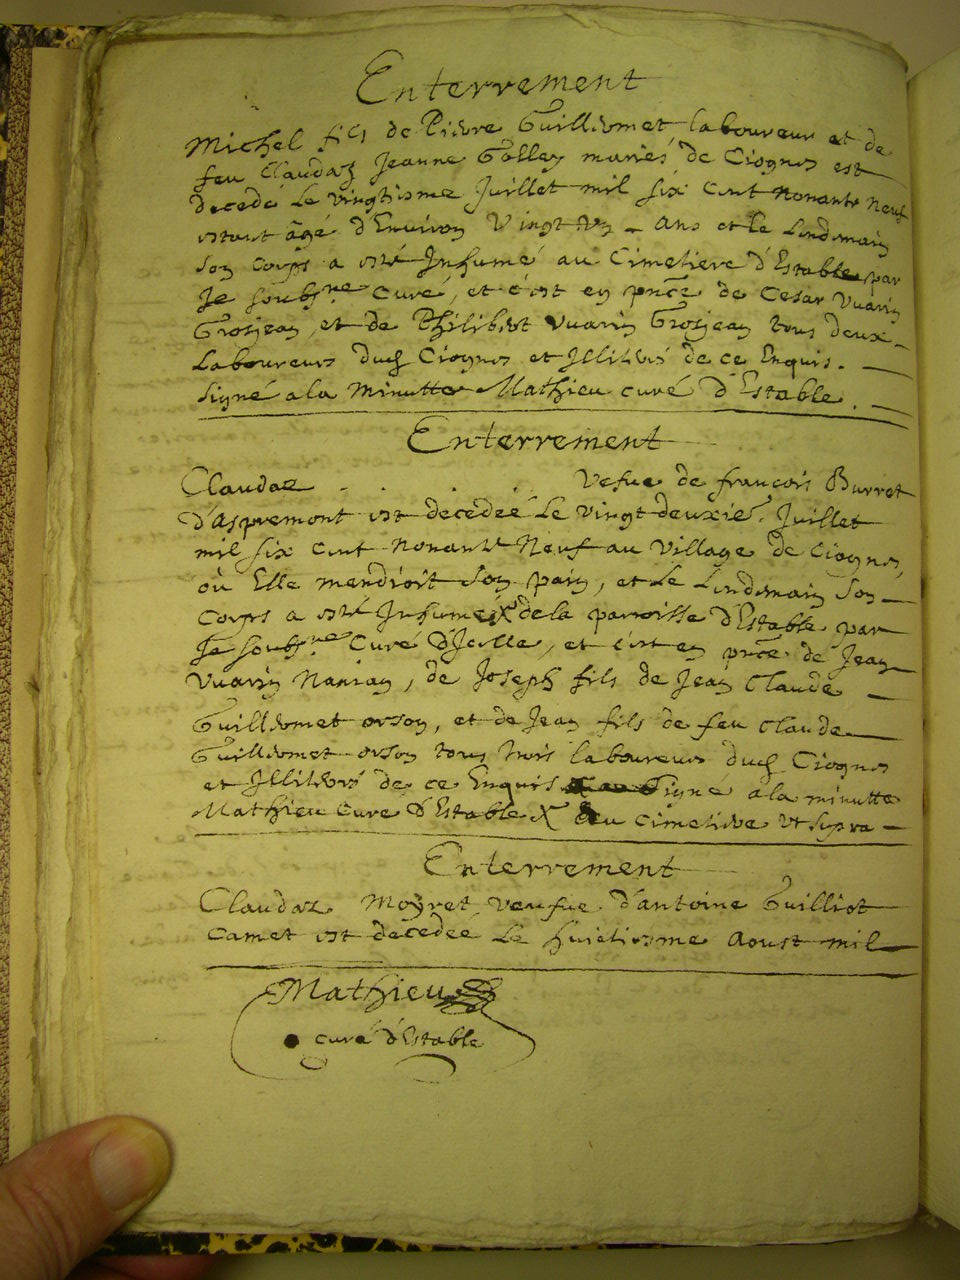 Enterrement
Michel fils de Pierre Guilliermet laboureur et de
feu Claudaz Jeanne Golley mariés de Ciognes est
decedé Le vingtiesme Juillet mil six cent nonante neuf
estant âgé d'Environ Vingt un ans et le Lendemain
son corps a esté Inhumé au Cimetiere d'Estable par
Je soubs.né Curé, et c'est en pnce de Cesar Vuarin
Grosjean, et de Philibert vuarin Grosjean tous deux
Laboureurs dud Ciognes et Illiterés de ce Enquis.
Signé a la Minutte Mathieu curé d'Estable.
Enterrement
Claudaz . . . . Vefue de françois Burret
d'aspremont est decedée Le vingt deuxie. Juillet
mil six cent nonante Neuf au Village de Ciognes,
où Elle mendioit son pain, et Le Lendemain Son
Corps a esté Inhumé X de la parroisse d'Estable par
Je soubs.né Curé d'Icelle, et c'est en pnce de Jean
Vuarin Nanian, de Joseph fils de Jean Claude
Guilliermet orson, et de Jean fils de feu Claude
Guilliermet orson tous trois laboureurs dud Ciognes
et Illiterés de ce Enquis Signé a la minutte
Mathieu Curé d'Estable X au cimetiere ut supra
Enterrement
Claudaz Moyret veufue d'antoine Guilliot
Camet est decedée Le huietiesme Aoust mil
Mathieu
curé d'Estable